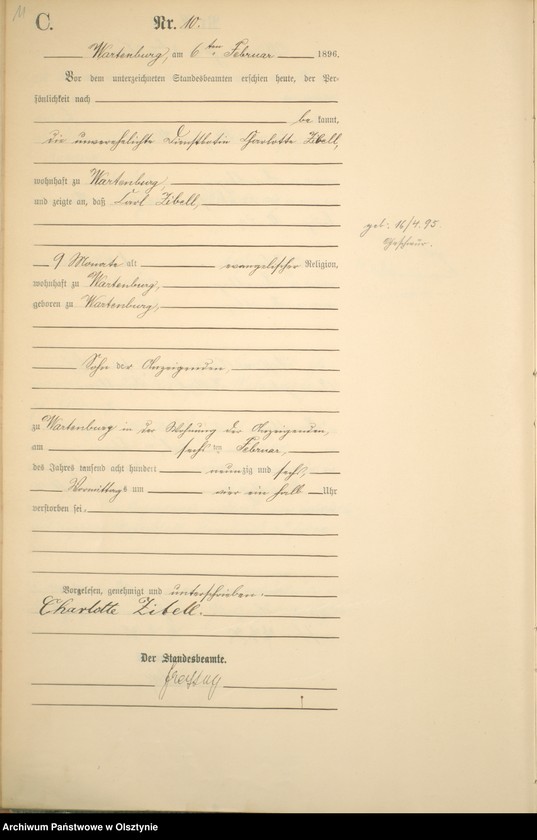 11
C.
Nr. 10.
Wartenburg, am 6ten Februar 1896.
Vor dem unterzeichneten Standesbeamten erschien heute, der Per-
sönlichkeit nach
be kannt,
die unverehelichte Dienstbotin Charlotte Zibell,
wohnhaft zu Wartenburg,
und zeigte an, daß Carl Zibell,
geb. 16/4. 95
9 Monate alt evangelischer Religion,
wohnhaft zu Wartenburg,
geboren zu Wartenburg,
Sohn der Anzeigenden
zu Wartenburg in der Wohnung der Anzeigenden,
am sechsten Februar,
des Jahres tausend acht hundert neunzig und sechs,
Vormittags um vier ein halb Uhr
verstorben sei.
Vorgelesen, genehmigt und unterschrieben.
Charlotte Zibell.
Der Standesbeamte.
Archiwum Państwowe w Olsztynie